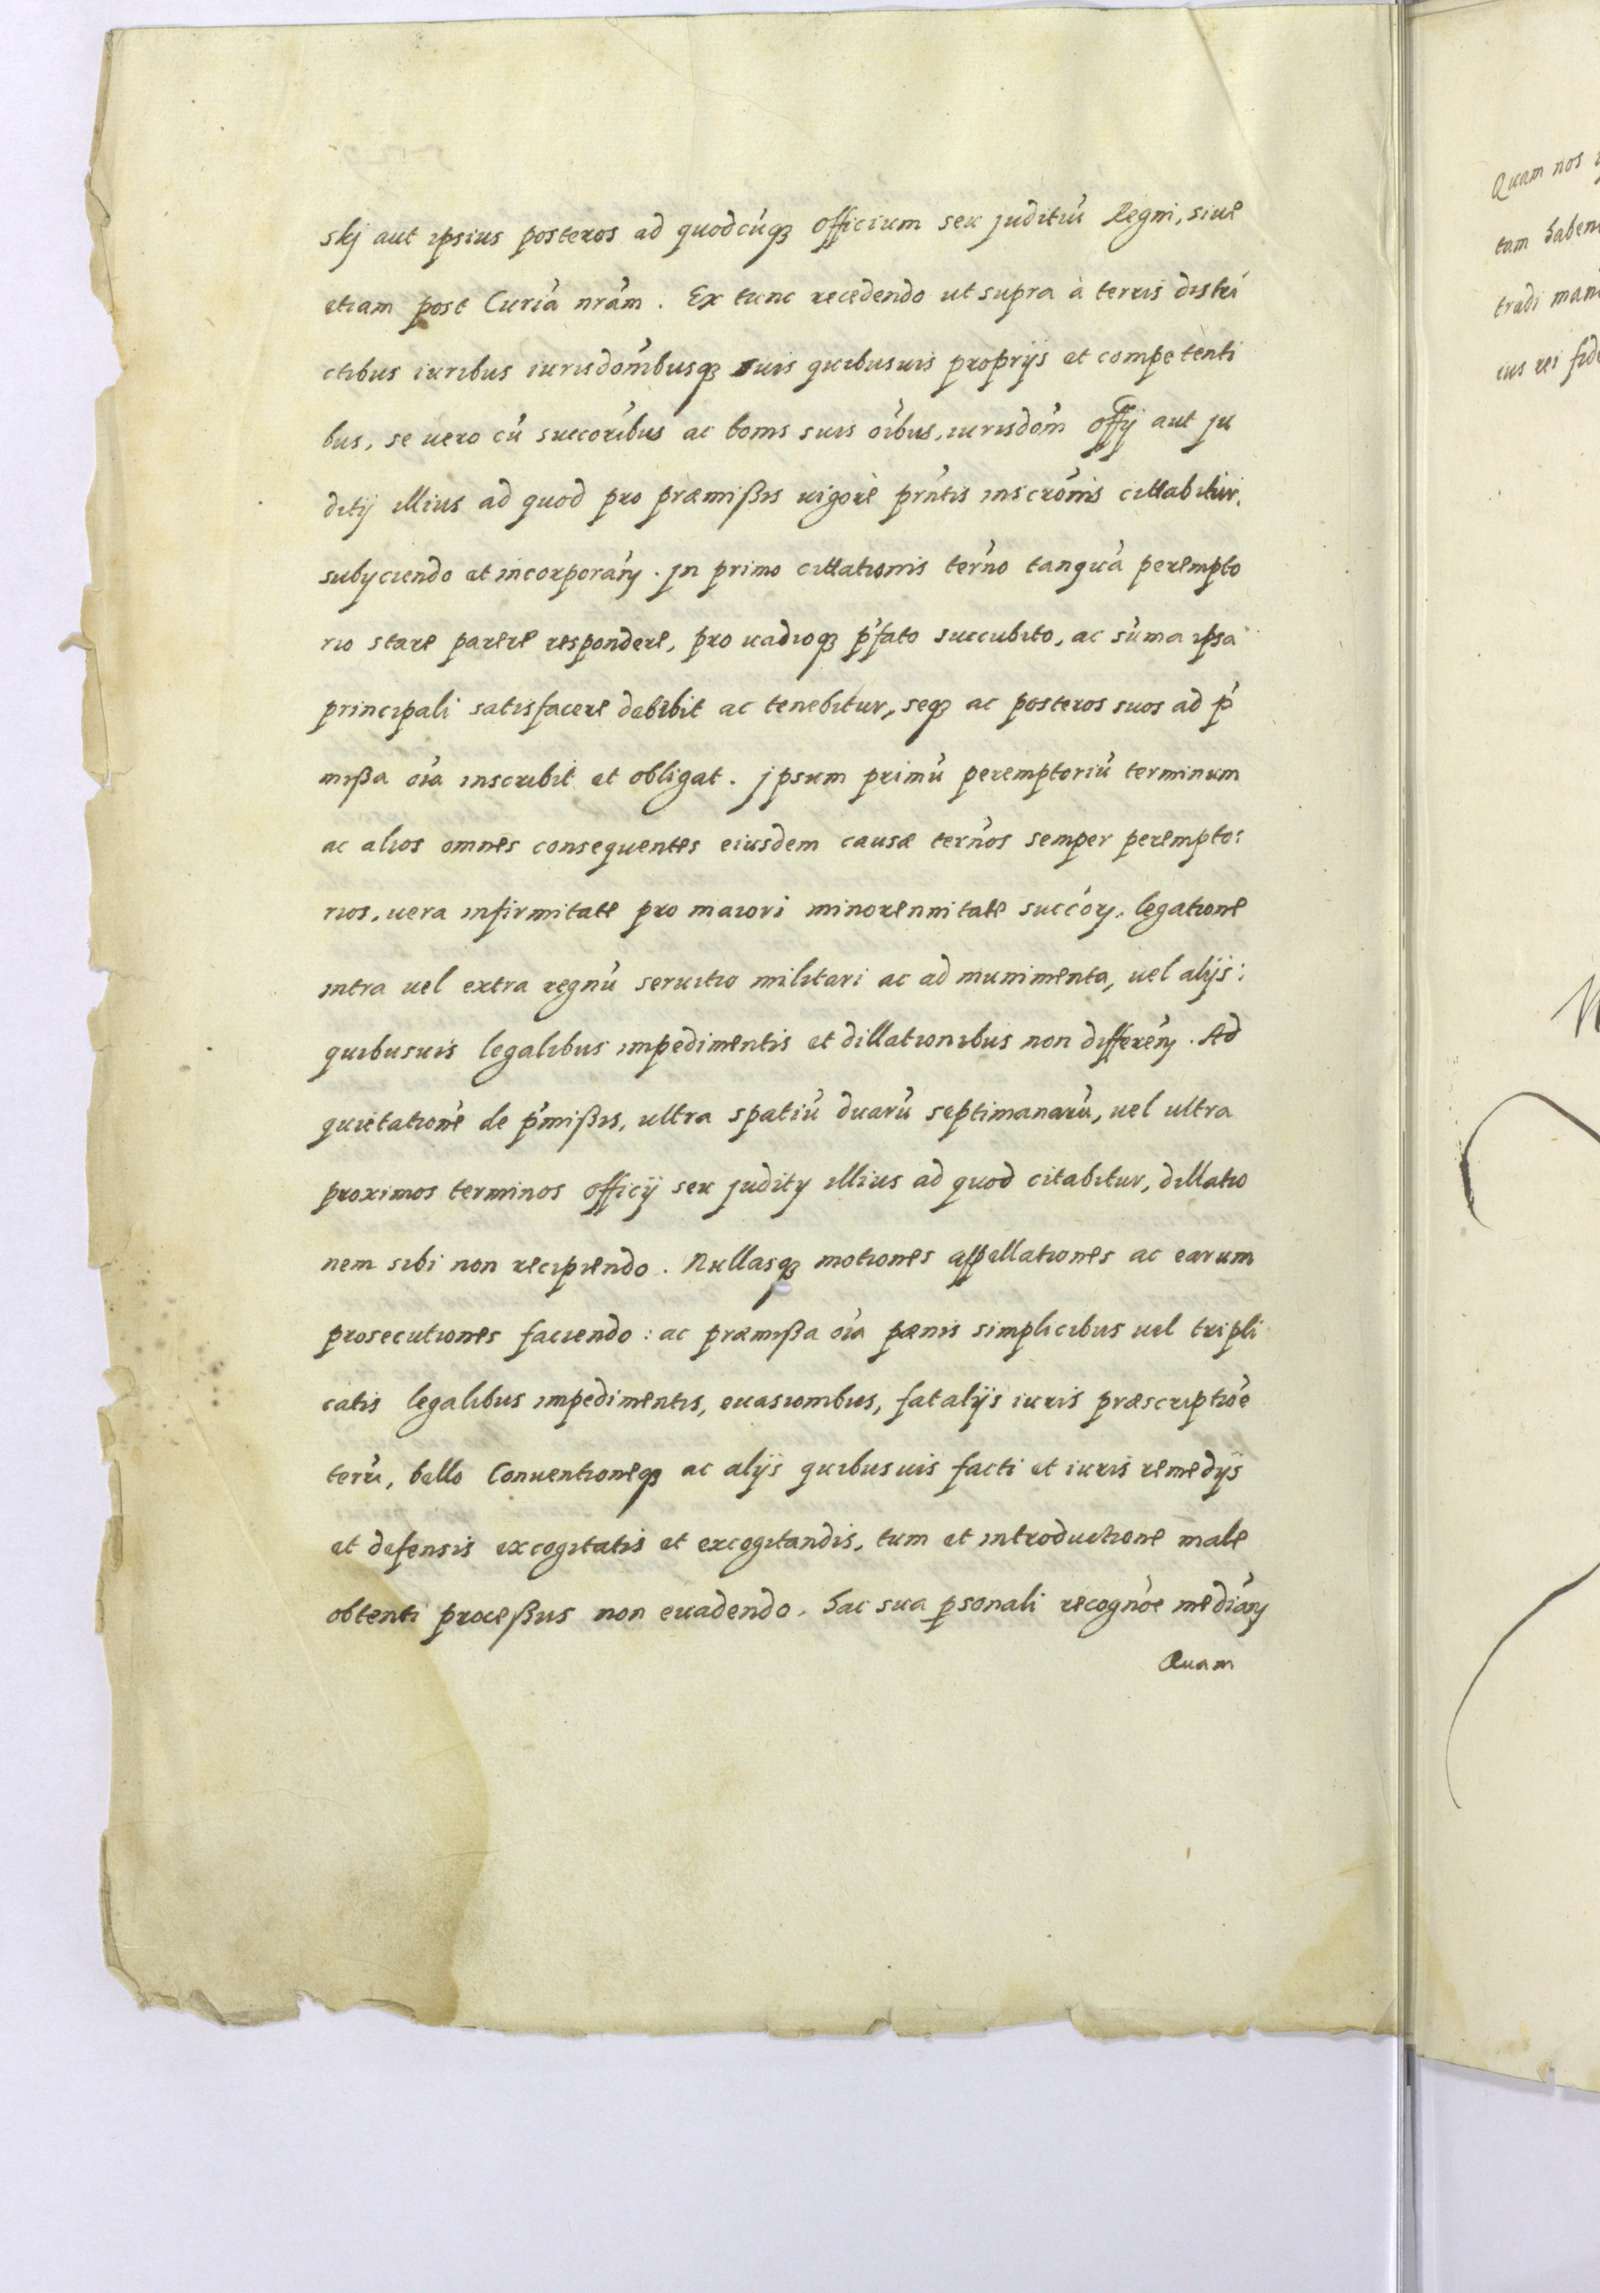 skj aut ipsius posteros ad quodcúq3 officium seu juditiú Regni, siue
etiam post Curiá nrám. Ex tunc recedendo ut supra à terris distri
ctibus iuribus iurisdońibusq3 suis quibusuis proprijs et competenti
bus, se uero cú succoribus ac bonis suis oíbus, iurisdoń offij aut ju
ditij illius ad quod pro præmißis uigore prńtis inscrońis cittabitur,
subyciendo et incorporań. Jn primo cittationis terńo tanquá perempto
rio stare parere respondere, pro uadioq3 p'fato succubito, ac súma ipsa
principali satisfacere debebit ac tenebitur, seq3 ac posteros suos ad p'
mißa oía inscribit et obligat. Jpsum primú peremptoriú terminum
ac alios omnes consequentes eiusdem causæ terńos semper perempto:
rios, uera infirmitate pro maiori minorennitate succory, legatione
intra uel extra regnú seruitio militari ac ad munimenta, uel alijs:
quibusuis legalibus impedimentis et dillationibus non differeń. Ad
quietatione de p'mißis, ultra spatiú duarú septimanarú, uel ultra
proximos terminos officij seu judity illius ad quod citabitur, dillatio
nem sibi non recipiendo. Nullasq3 motiones appellationes ac earum
prosecutiones faciendo: ac præmißa oía pænis simplicibus uel tripli
catis legalibus impedimentis, euasionibus, fatalijs iuris præscriptióe
terrú, bello Conuentioneq3 ac alijs quibusuis facti et iuris remedijs
et defensis excogitatis et excogitandis, tum et introductione male
obtenti proceßus non euadendo. Hac sua psonali recognóe mediań
Quam
Quam nos
tam habent
tradi man
ius rei fide